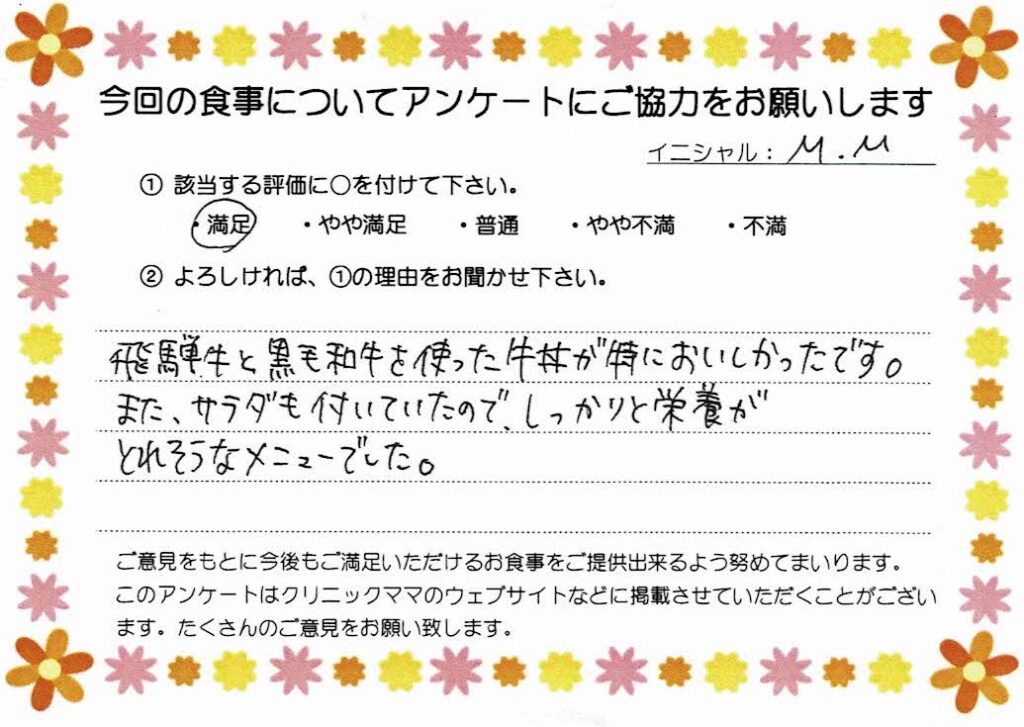 今回の食事についてアンケートにご協力をお願いします
イニシャル: M.M
① 該当する評価に○を付けて下さい。
・満足 ・やや満足 ・普通 ・やや不満 ・不満
② よろしければ、①の理由をお聞かせ下さい。
飛騨牛と黒毛和牛を使った牛丼が特においしかったです。
また、サラダも付いていたので、しっかりと栄養が
とれそうなメニューでした。
ご意見をもとに今後もご満足いただけるお食事をご提供出来るよう努めてまいります。
このアンケートはクリニックママのウェブサイトなどに掲載させていただくことがござい
ます。たくさんのご意見をお願い致します。